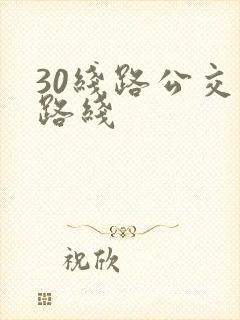 30綫路公交
路綫
祝欣